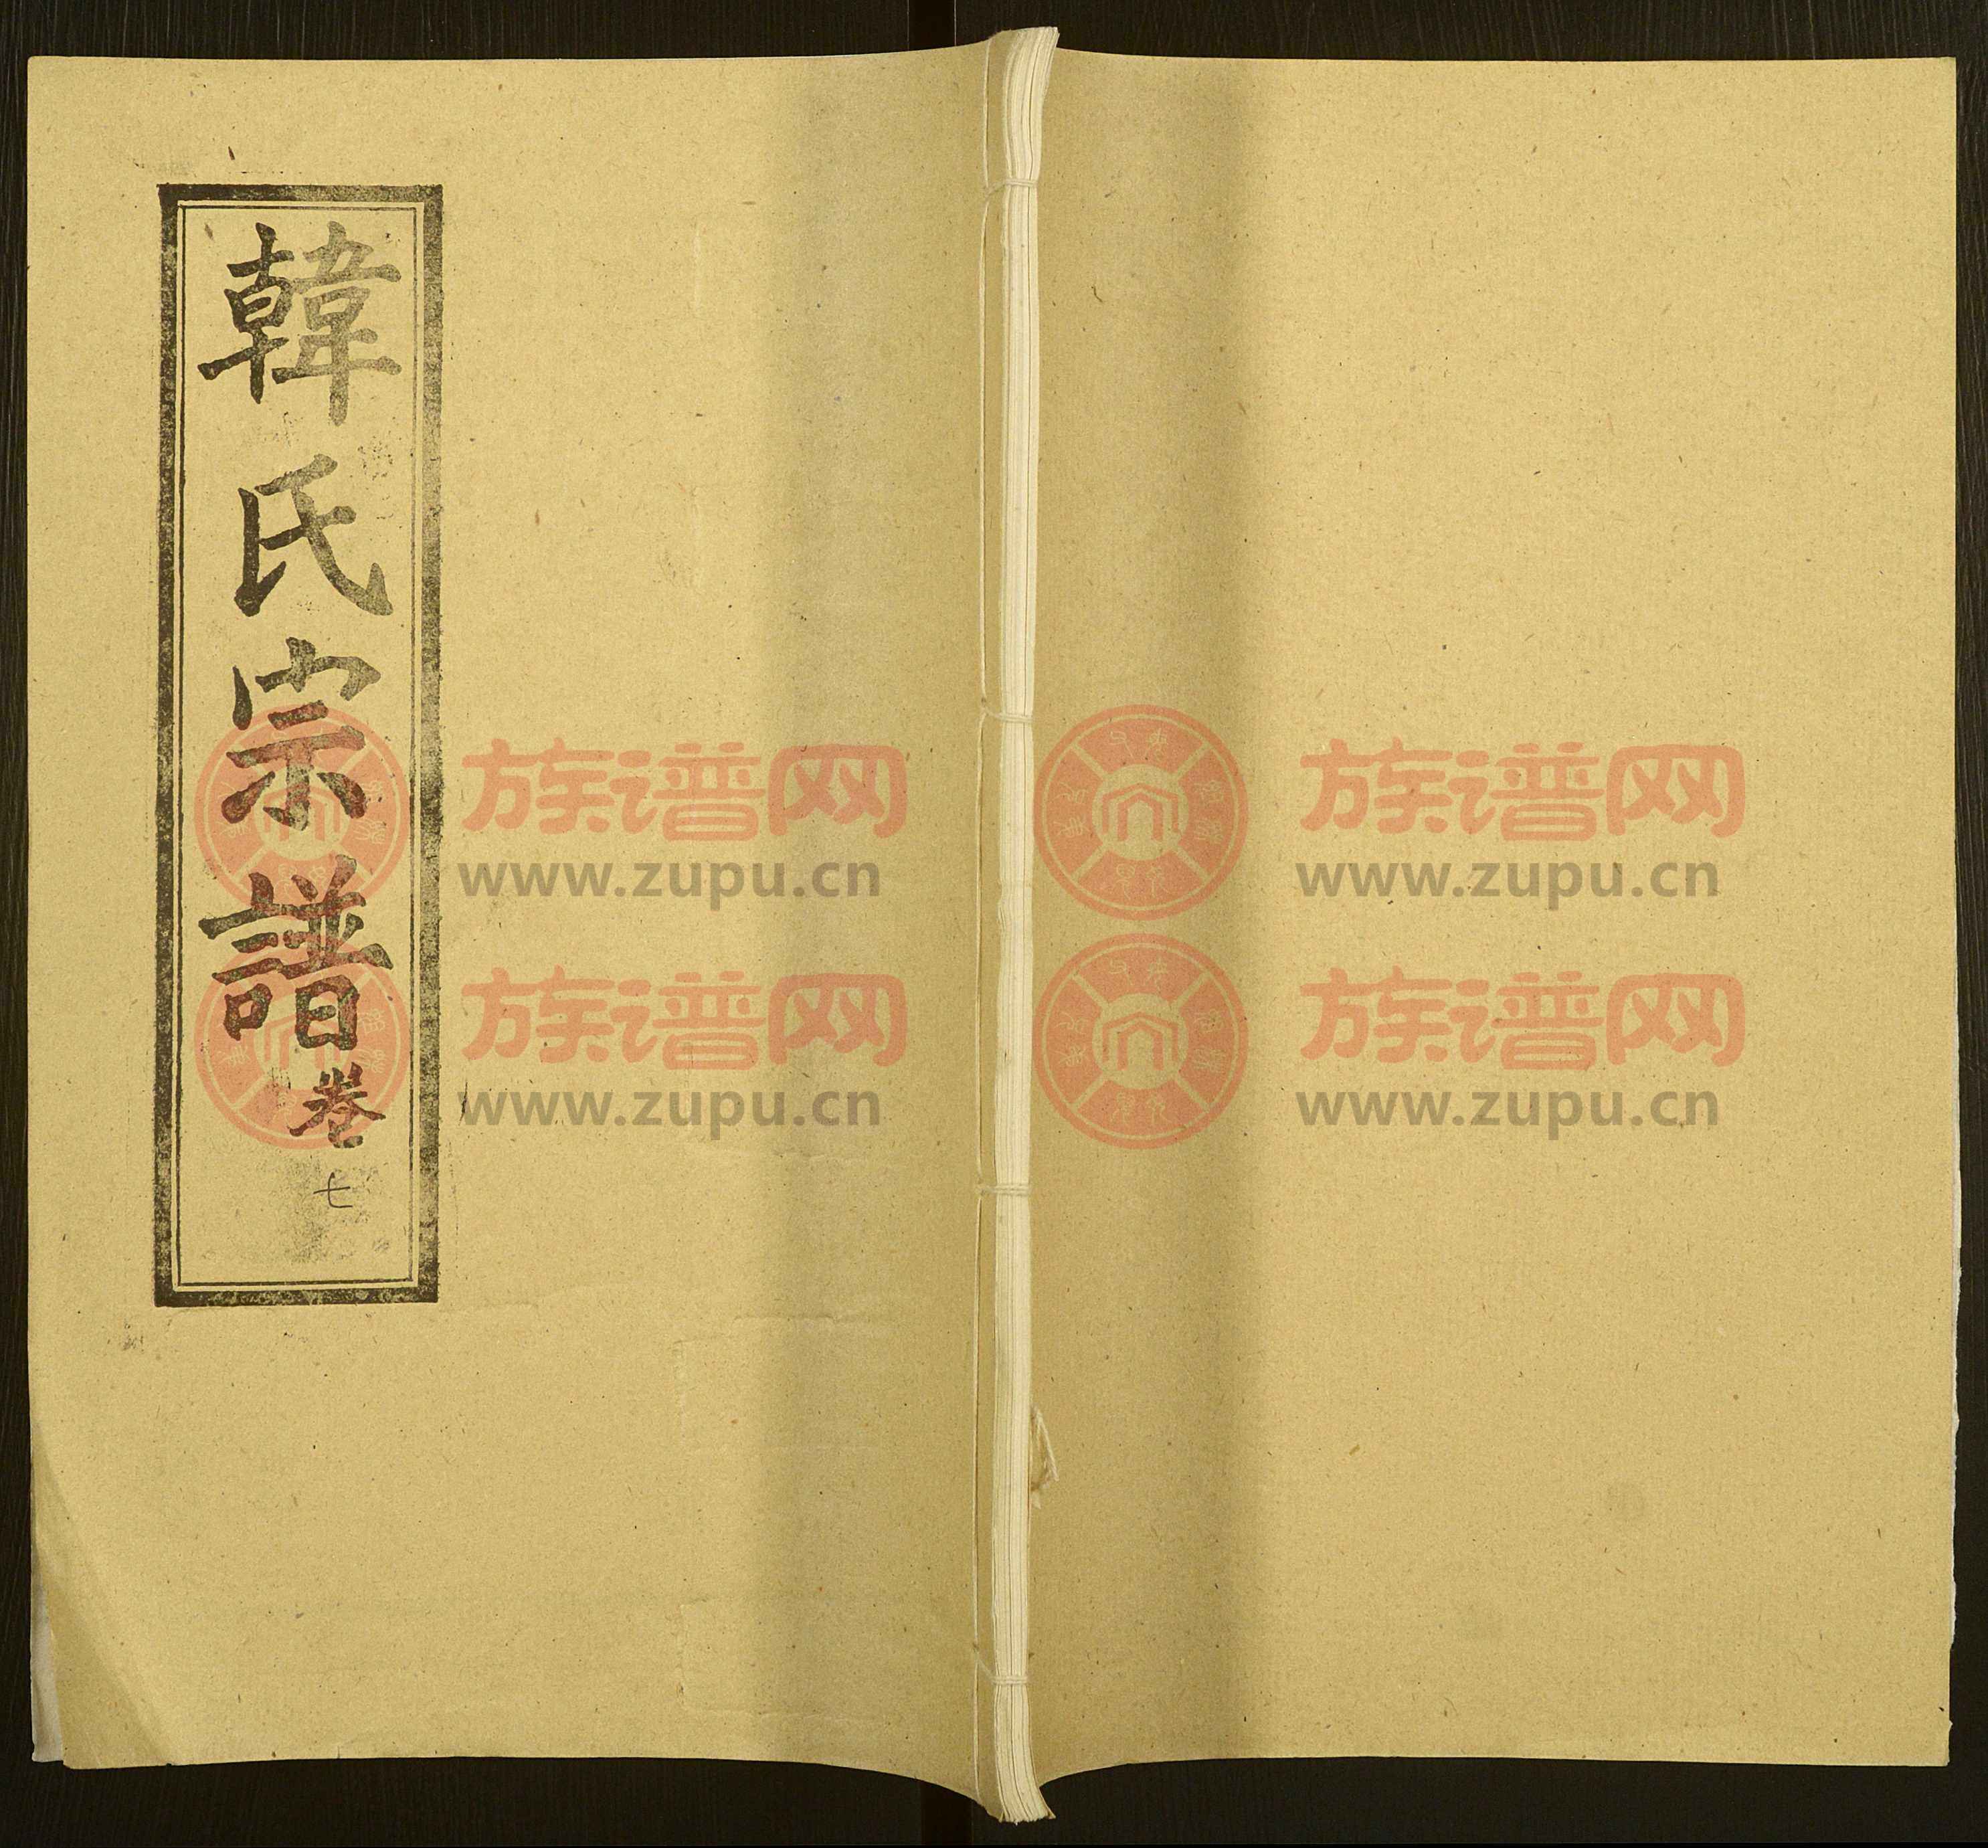 韓氏宗譜卷之
七
族谱网
www.zupu.cn
族谱网
www.zupu.cn
族谱网
www.zupu.cn
族谱网
www.zupu.cn